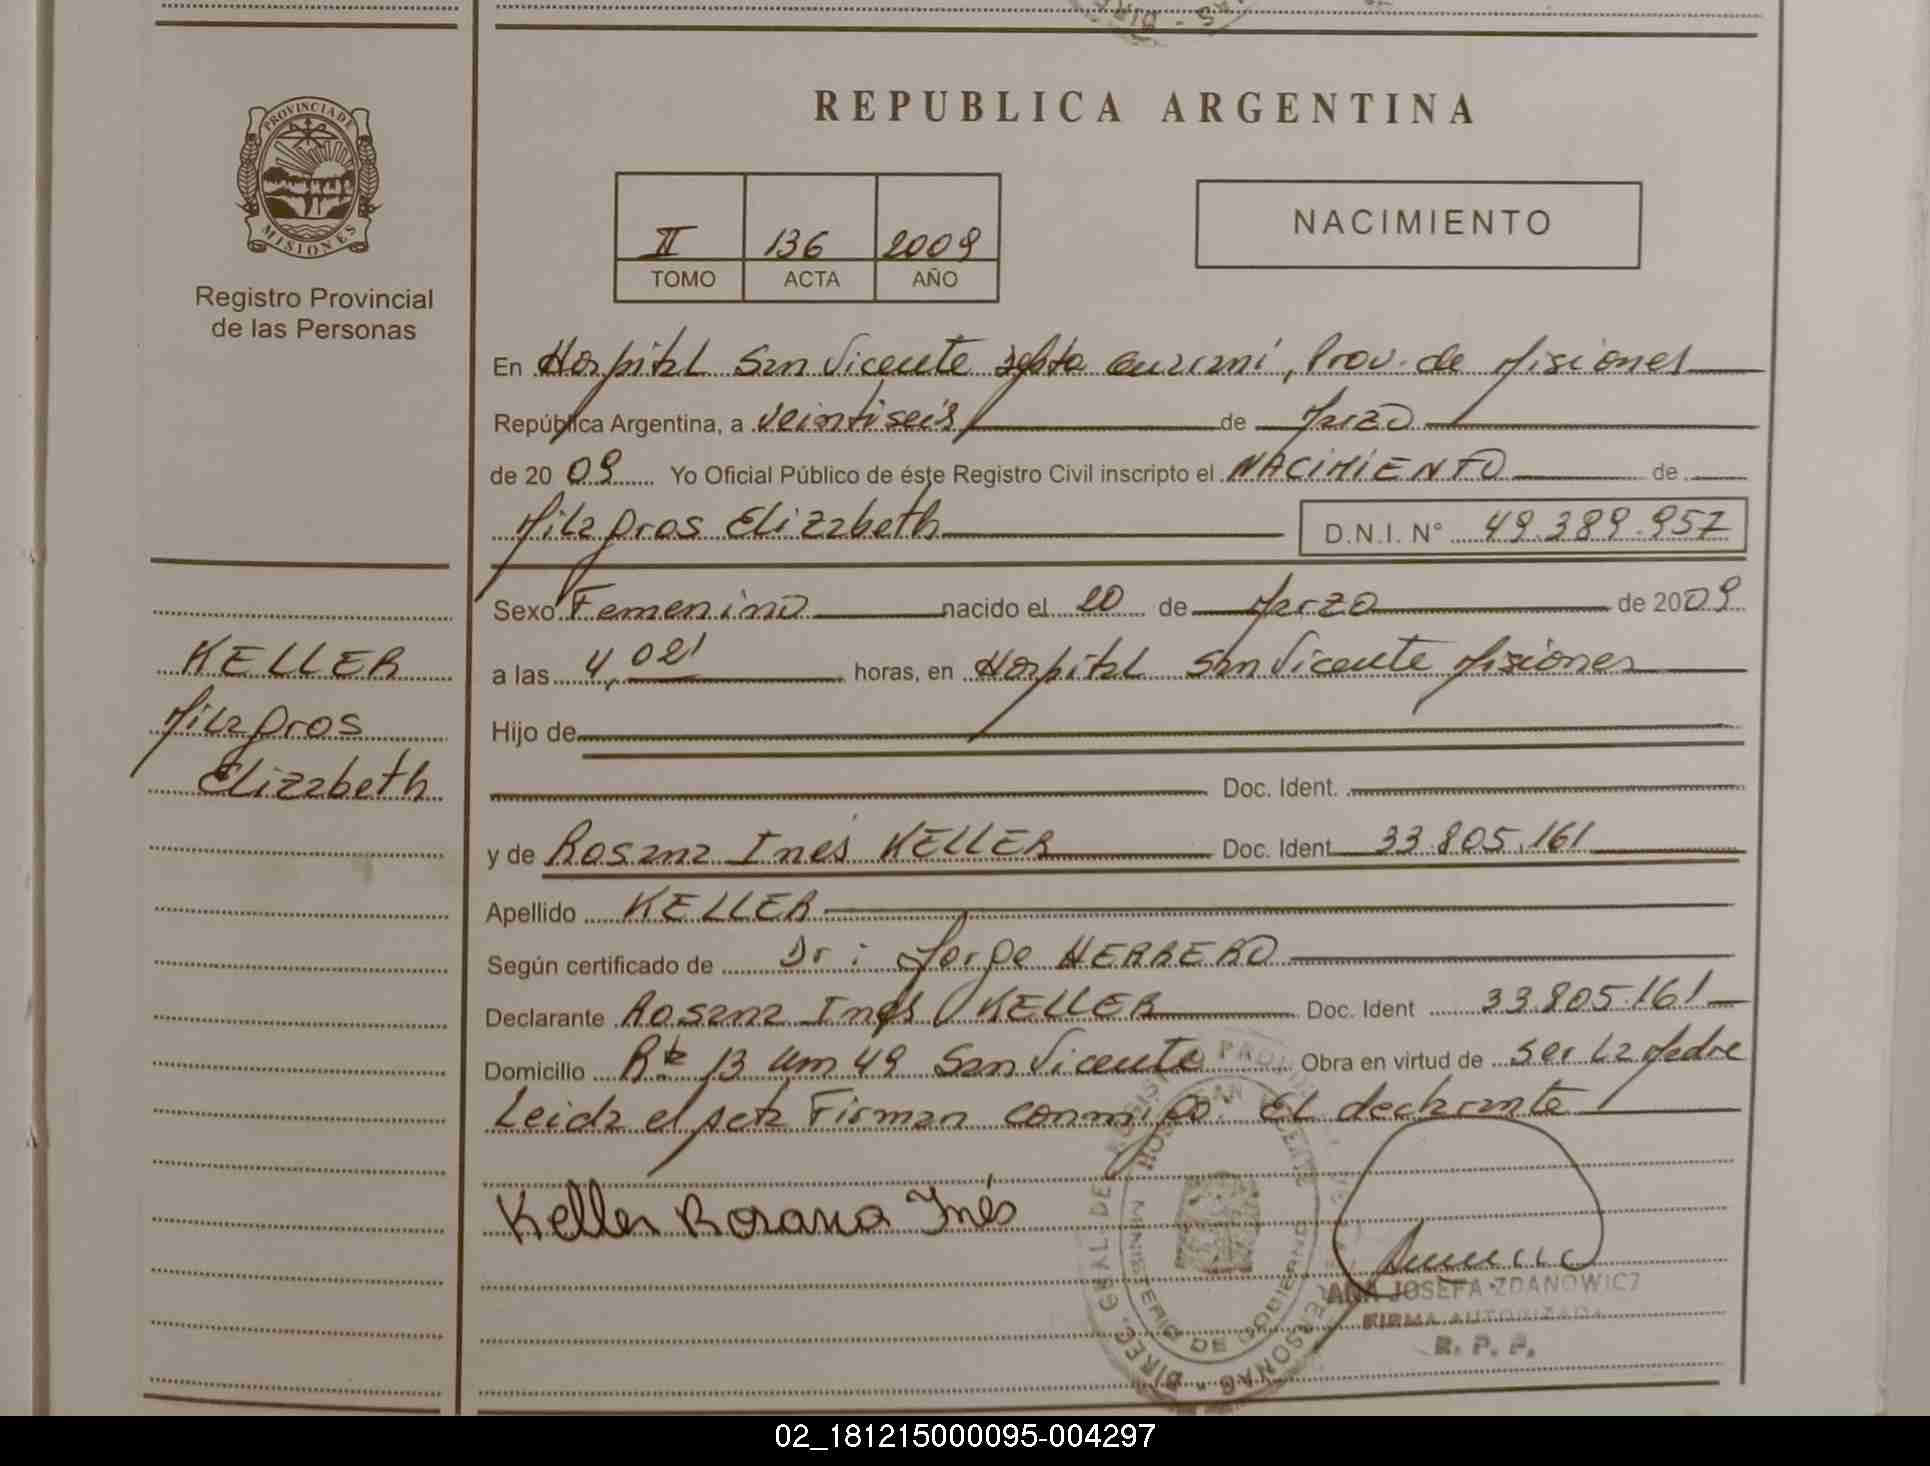 REPUBLICA ARGENTINA
PROVINCIA DE
MISIONES
Registro Provincial
de las Personas
II 136 2009
TOMO ACTA AÑO
NACIMIENTO
En Hospital San Vicente Guaraní, Prov. de Misiones
República Argentina, a veintiseis de Marzo
de 2009 Yo Oficial Público de éste Registro Civil inscripto el NACIMIENTO de
Milagros Elizabeth D.N.I. N° 49.389.957
Sexo Femenino nacido el 20 de Marzo de 2009
a las 4,02' horas, en Hospital San Vicente Misiones
Hijo de
Doc. Ident.
y de Rosana Inés KELLER Doc. Ident 33.805.161
Apellido KELLER
Según certificado de Dr: Jorge HERRERO
Declarante Rosana Inés KELLER Doc. Ident 33.805.161
Domicilio Rta 13 Km 49 San Vicente Obra en virtud de Ser La Madre
Leida el acta Firman conmigo: El declarante
Keller Rosana Inés
KELLER
Milagros
Elizabeth
HOSP. SAN VICENTE
MINISTERIO DE GOBIERNO
ANA JOSEFA ZDANOWICZ
FIRMA AUTORIZADA
R. P. P.
02_181215000095-004297